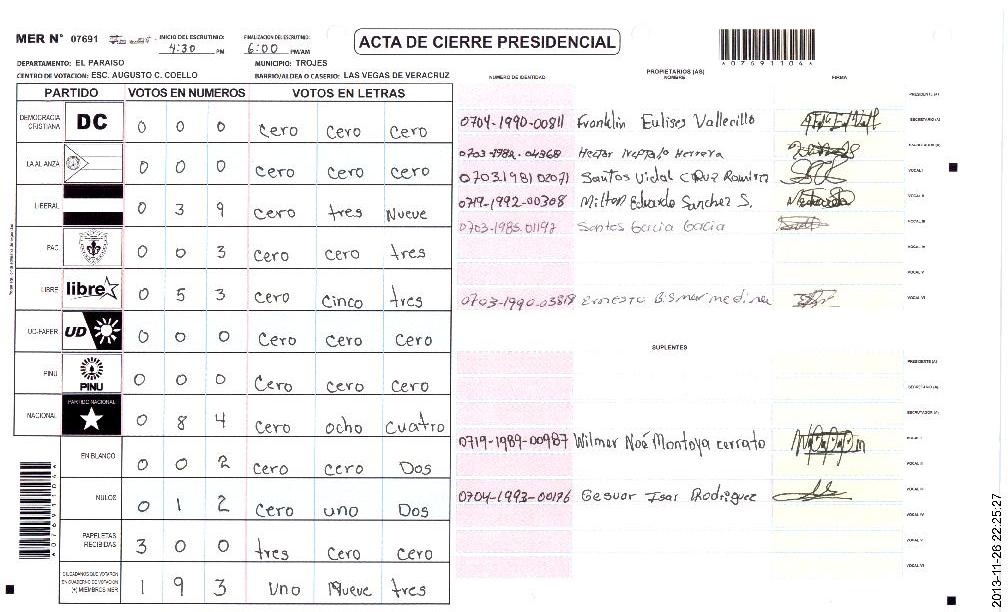 MER N° 07691 INICIO DEL ESCRUTINIO: 4:30 PM FINALIZACION DEL ESCRUTINIO: 6:00 PM/AM
ACTA DE CIERRE PRESIDENCIAL
A07691104A
DEPARTAMENTO: EL PARAISO MUNICIPIO: TROJES
CENTRO DE VOTACION: ESC. AUGUSTO C. COELLO BARRIO/ALDEA O CASERIO: LAS VEGAS DE VERACRUZ
NUMERO DE IDENTIDAD PROPIETARIOS (AS) NOMBRE FIRMA
PARTIDO VOTOS EN NUMEROS VOTOS EN LETRAS
PRESIDENTE (A)
DEMOCRACIA CRISTIANA DC 0 0 0 Cero Cero Cero
0704-1990-00811 Franklin Eulises Vallecillo SECRETARIO (A)
LA ALIANZA 0 0 0 Cero Cero Cero
0703-1982-04368 Hector Neptalo Herrera ESCRUTADOR (A)
0703.1981 02071 Santos Vidal CRuz Ramirez VOCAL I
LIBERAL 0 3 9 Cero tres Nueve
0719-1992-00308 Milton Eduardo Sanchez S. VOCAL II
0703-1985.01197 Santos Garcia Gacia VOCAL III
PAC 0 0 3 Cero Cero tres
VOCAL IV
VOCAL V
LIBRE libre 0 5 3 Cero Cinco tres
0703-1990-03818 Ernesto Bismar medina VOCAL VI
UD-FAPER UD 0 0 0 Cero Cero Cero
SUPLENTES
PRESIDENTE (A)
PINU PINU 0 0 0 Cero Cero Cero
SECRETARIO (A)
NACIONAL PARTIDO NACIONAL 0 8 4 Cero ocho cuatro
ESCRUTADOR (A)
0719-1989-00987 Wilmer Noé Montoya cerrato VOCAL I
EN BLANCO 0 0 2 Cero Cero Dos
VOCAL II
NULOS 0 1 2 Cero uno Dos
0704-1993-00176 Gesuar Isar Rodriguez VOCAL III
VOCAL IV
PAPELETAS RECIBIDAS 3 0 0 tres Cero Cero
VOCAL V
CIUDADANOS QUE VOTARON EN CUADERNO DE VOTACION (+) MIEMBROS MER 1 9 3 Uno Nueve tres
VOCAL VI
A07691104A
2013-11-26 22:25:27